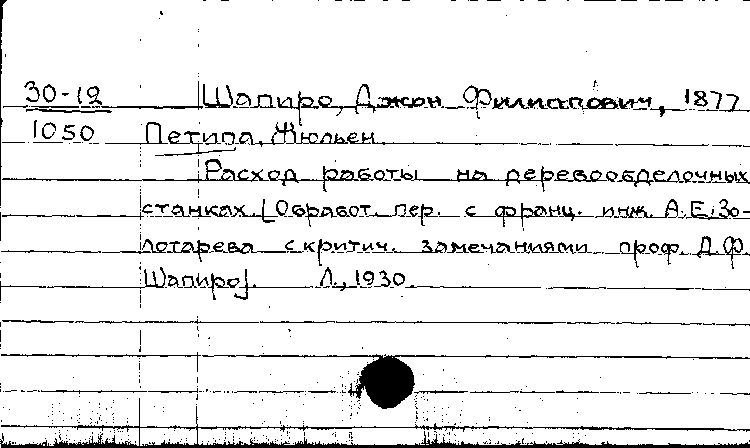 30-12 Шапиро, Джон Филиппович, 1877
1050 Петипа, Жюльен.
Расход работы на деревообделочных
станках. [Обработ. пер. с франц. инж. А.Е. Зо-
лотарева с критич. замечаниями проф. Д.Ф.
Шапиро]. Л., 1930.